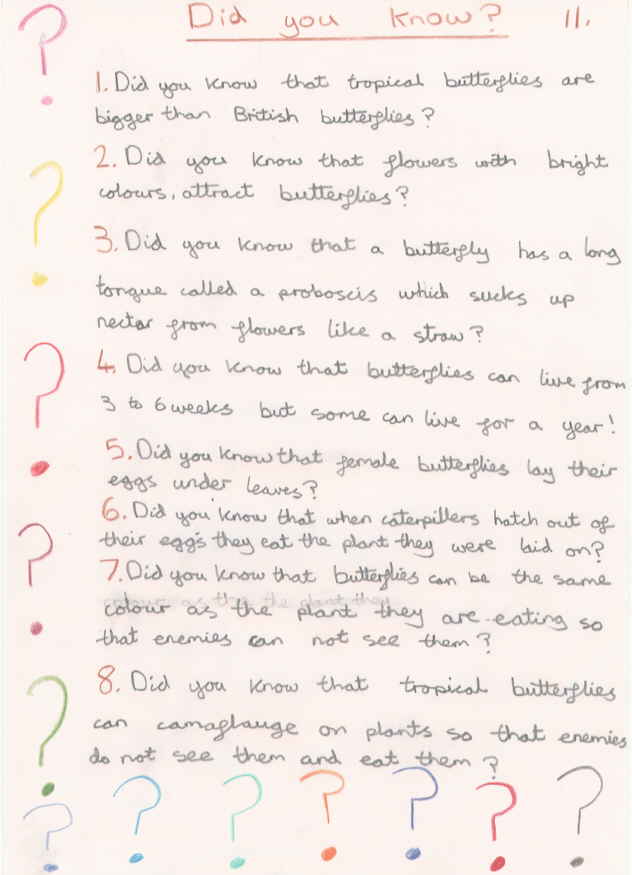 Did you know? 11.
1. Did you know that tropical butterflies are
bigger than British butterflies?
2. Did you know that flowers with bright
colours, attract butterflies?
3. Did you know that a butterfly has a long
tongue called a proboscis which sucks up
nectar from flowers like a straw?
4. Did you know that butterflies can live from
3 to 6 weeks but some can live for a year!
5. Did you know that female butterflies lay their
eggs under leaves?
6. Did you know that when caterpillers hatch out of
their eggs they eat the plant they were laid on?
7. Did you know that butterflies can be the same
colour as the plant they are eating so
that enemies can not see them?
8. Did you know that tropical butterflies
can camaflauge on plants so that enemies
do not see them and eat them?